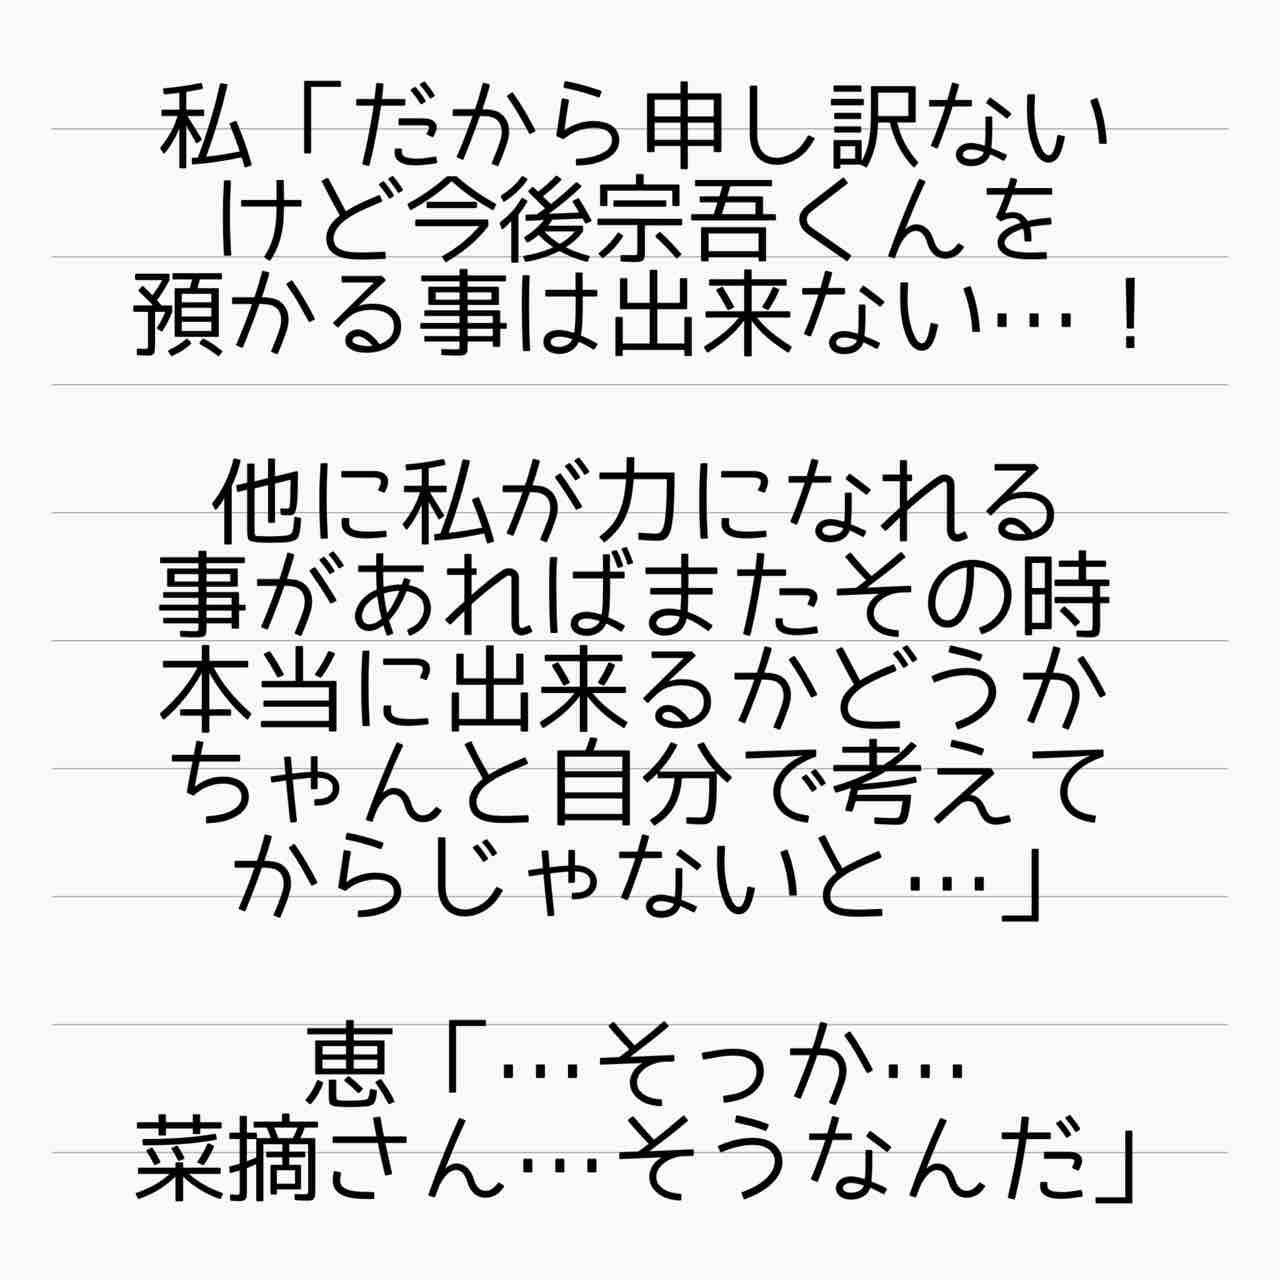 私「だから申し訳ない
けど今後宗吾くんを
預かる事は出来ない…！
他に私が力になれる
事があればまたその時
本当に出来るかどうか
ちゃんと自分で考えて
からじゃないと…」
恵「…そっか…
菜摘さん…そうなんだ」